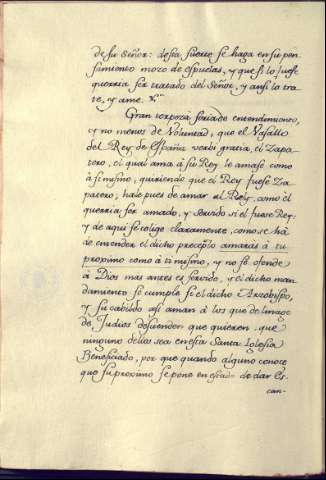 de su Señor: desta suerte se haga en su pen-
samiento mozo de espuelas, y que si lo fuese
querria ser tratado del Señor, y ansi lo tra-
te, y ame.
Gran torpeza seria de entendimiento,
y no menos de Voluntad, que el Vasallo
del Rey de España verbi gratia, el Zapa-
tero, el qual ama à su Rey le amase como
à si mismo, quiriendo que el Rey fuese Za-
patero, hale pues de amar al Rey, como èl
querria ser amado, y servido si el fuese Rey:
y de aqui se colige claramente, como se hà
de entender el dicho precepto amaràs à tu
proximo como à ti mismo, y no se ofende
à Dios mas antes es servido, y el dicho man-
damiento se cumple si el dicho Arzobispo,
y su cabildo asi aman à los que de linage
de Judios descienden que quieren que
ninguno dellos sea en esta Santa Iglesia
Beneficiado, por que quando alguno conoce
que su proximo se pone en estado de dar es-
can-